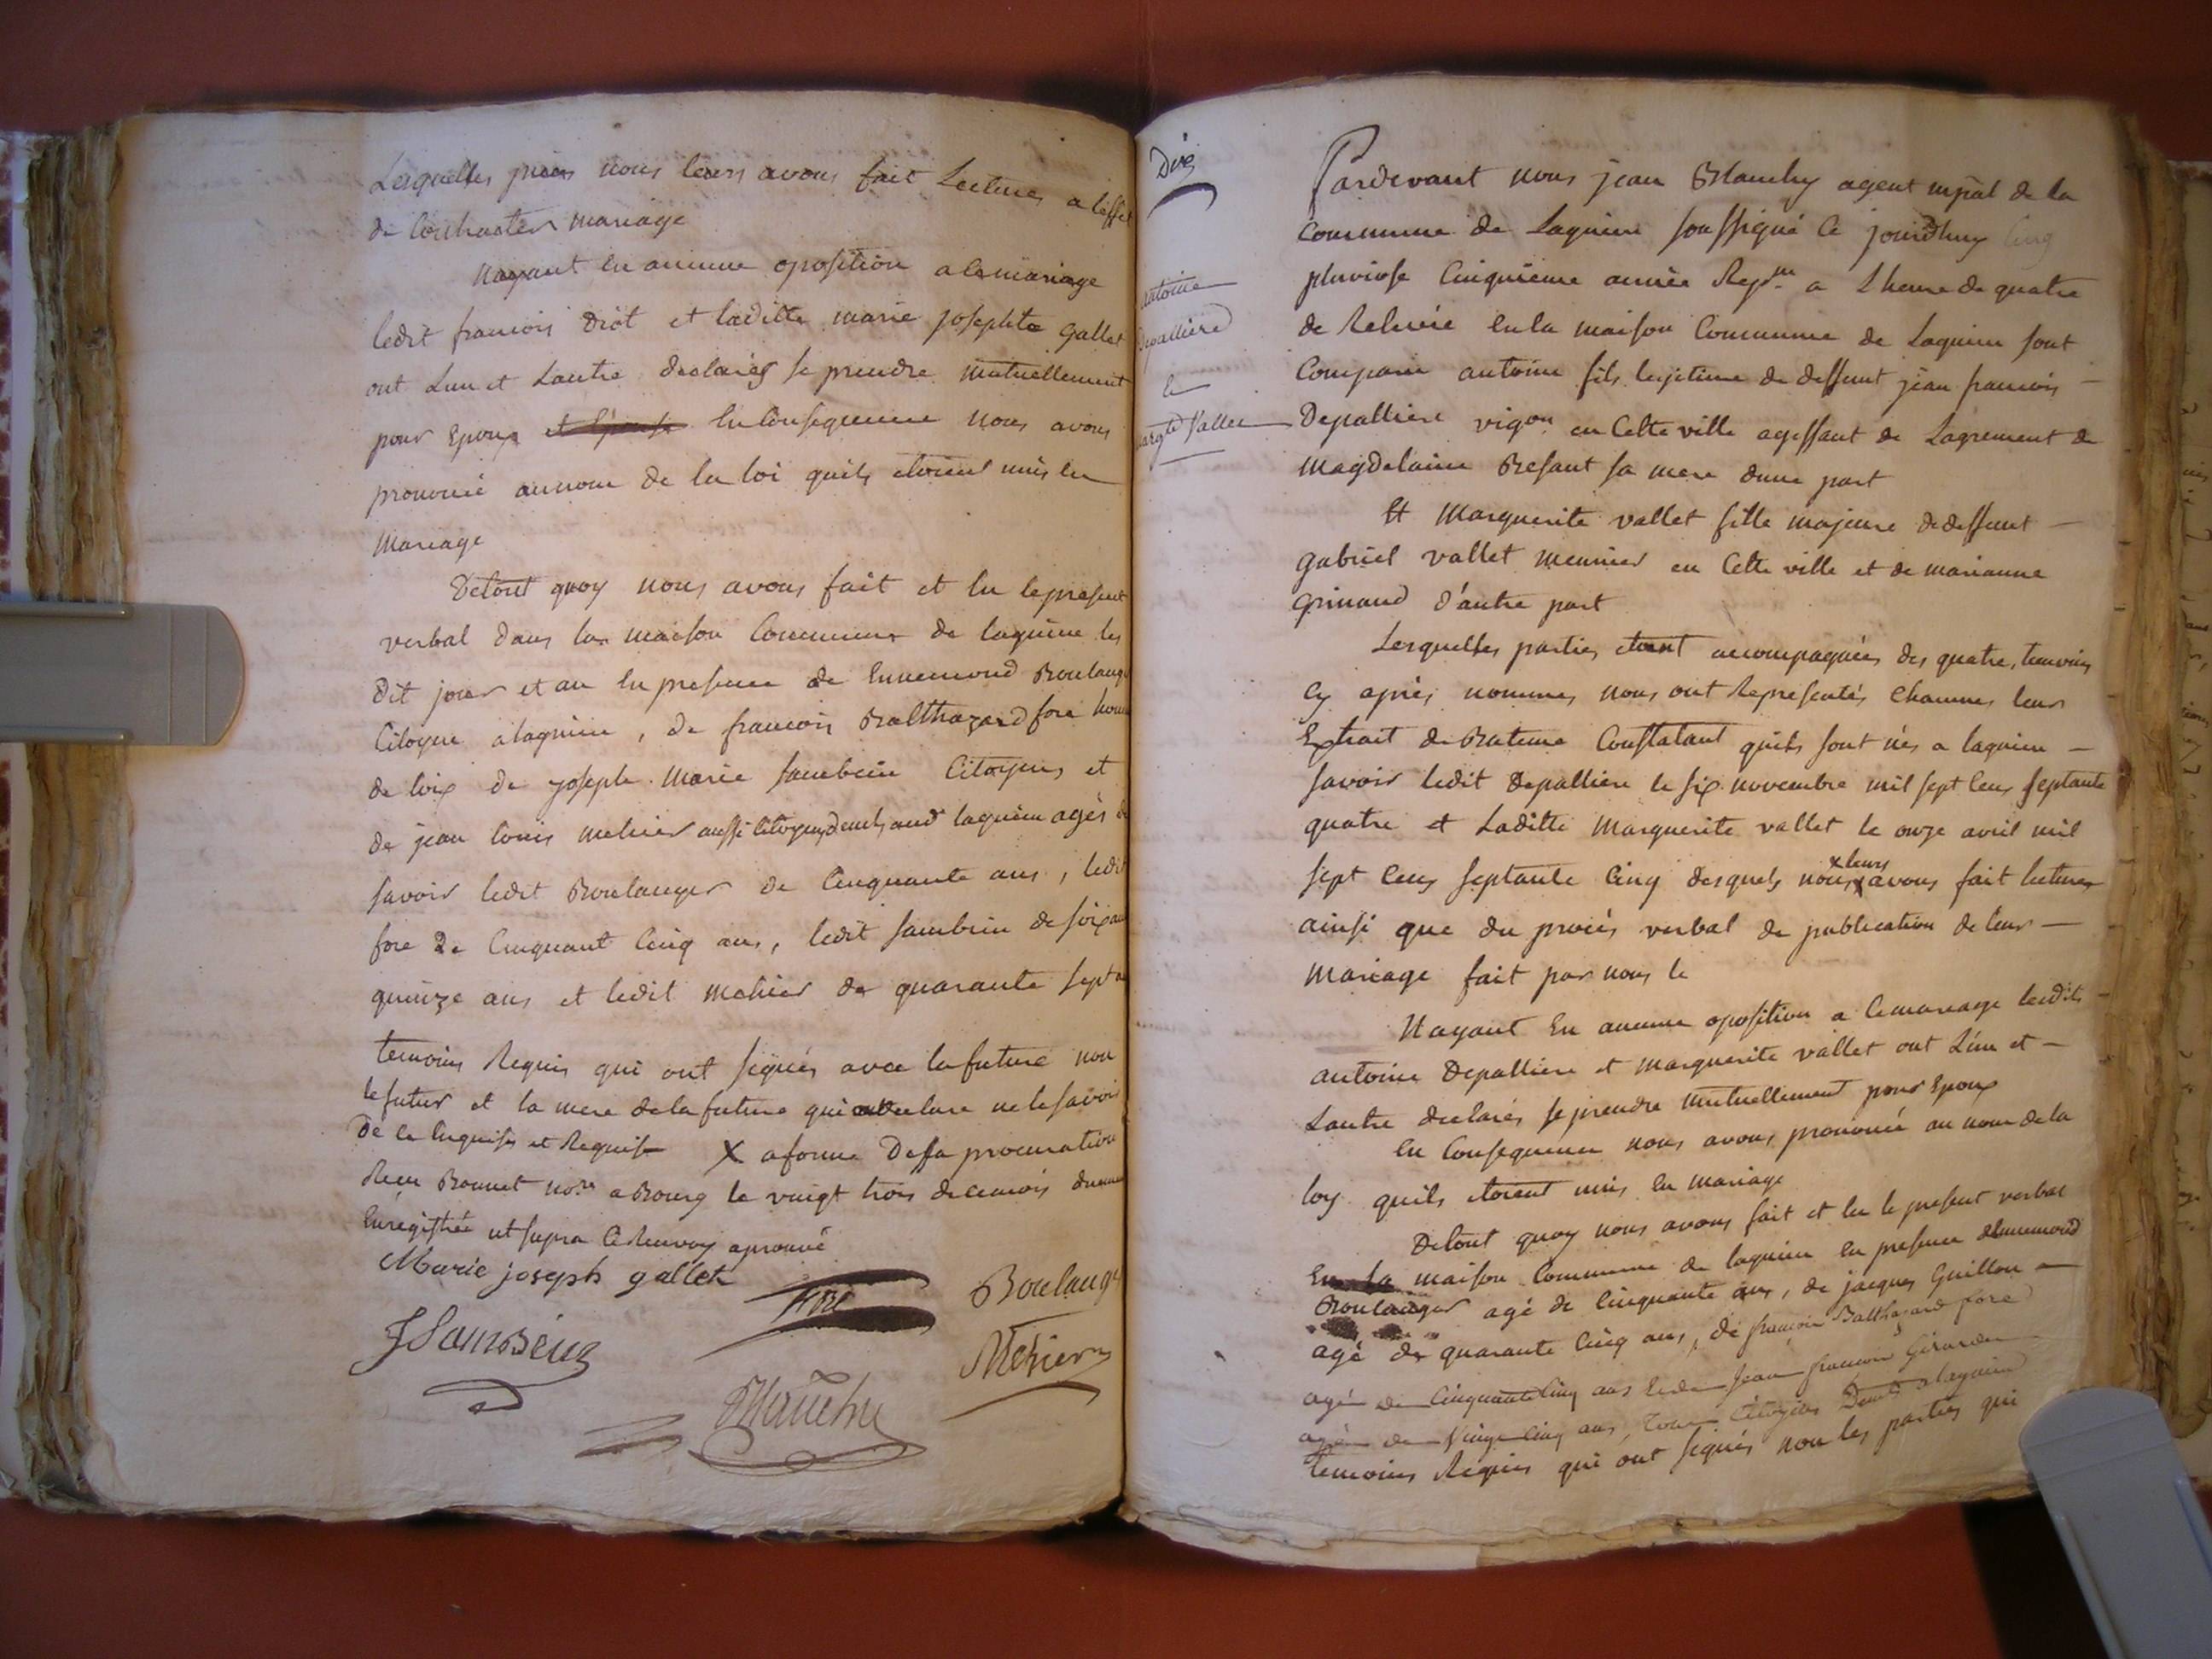 Lesquelles pieces nous leurs avons fait Lecture a leffet
de Contracter mariage
Nayant eu aucune oposition a ce mariage
ledit francois Diot et laditte marie josephte Gallet
ont Lun et Lautre declarés se prendre mutuellement
pour Epoux et Epouse En Consequence Nous avons
prononcé aunom de la loi quils etoient unis en
Mariage
Detout quoy nous avons fait et lu le present
verbal dans la maison Commune de lagnieu les
dit jour et an En presence de Ennemond Boulanger
Citoyen a lagnieu, de francois Balthazard foré homme
de loix de joseph Marie Citoyens et
de jean louis mehier aussi Citoyens demts aud lagnieu agés
savoir ledit Boulanger de Cinquante ans, ledit
fore de Cinquant Cinq ans, ledit de soixante
quinze ans et ledit mehier de quarante sept ans
temoins Requis qui ont signés avec la future non
le futur et la mere de la future qui ont declaré ne le savoir
de ce Enquis et Requis X a forme De sa procuration
Recu Bonnet nore a Bourg le vingt trois de ce mois duement
Enregistrée ut supra Ce Renvoy aprouvé
Marie joseph gallet
Foré
Boulanger
Mehier
Blanchy
Dix
Antoine
Depalliere
Et
Margte Vallet
Pardevant nous jean Blanchy agent mpal de la
Commune de Lagnieu soussigné Ce jourdhuy Cinq
pluviose Cinquieme année Repne a Lheure de quatre
de Relevée En la maison Commune de Lagnieu sont
Comparu antoine fils legitime de deffunt jean francois
Depalliere vigon en Cette ville agissant de Lagrement de
Magdelaine Besant sa mere dune part
Et Marguerite vallet fille majeure de deffunt
gabriel vallet meunier en Cette ville et de marianne
Grinand d'autre part
Lesquelles parties etant accompagnées des quatre temoins
Cy aprés nommés nous ont Representés Chacunes leur
Extrait de Bateme Constatant quils sont nés a lagnieu
savoir ledit Depalliere le six novembre mil sept Cens septante
quatre et Laditte Marguerite vallet le onze avril mil
sept Cens septante Cinq desquels nous x leurs avons fait lecture
ainsi que du procés verbal de publication de leur
mariage fait par nous le
Nayant Eu aucune oposition a Ce mariage lesdits
antoine Depalliere et Marguerite vallet ont L'un et
Lautre declarés se prendre mutuellement pour Epoux
En Consequence nous avons prononcé au nom de la
loy quils etoient unis En mariage
De tout quoy nous avons fait et lu le present verbal
En la maison Commune de lagnieu En presence dEnnemond
Boulanger agé de Cinquante ans, de jacques Guillon
agé de quarante Cinq ans, de francois Balthazard foré
agé de Cinquante Cinq ans Et de Jean francois Girardin
agé de Vingt Cinq ans, tous Citoyens Demts a lagnieu
temoins Requis qui ont signés non les parties qui